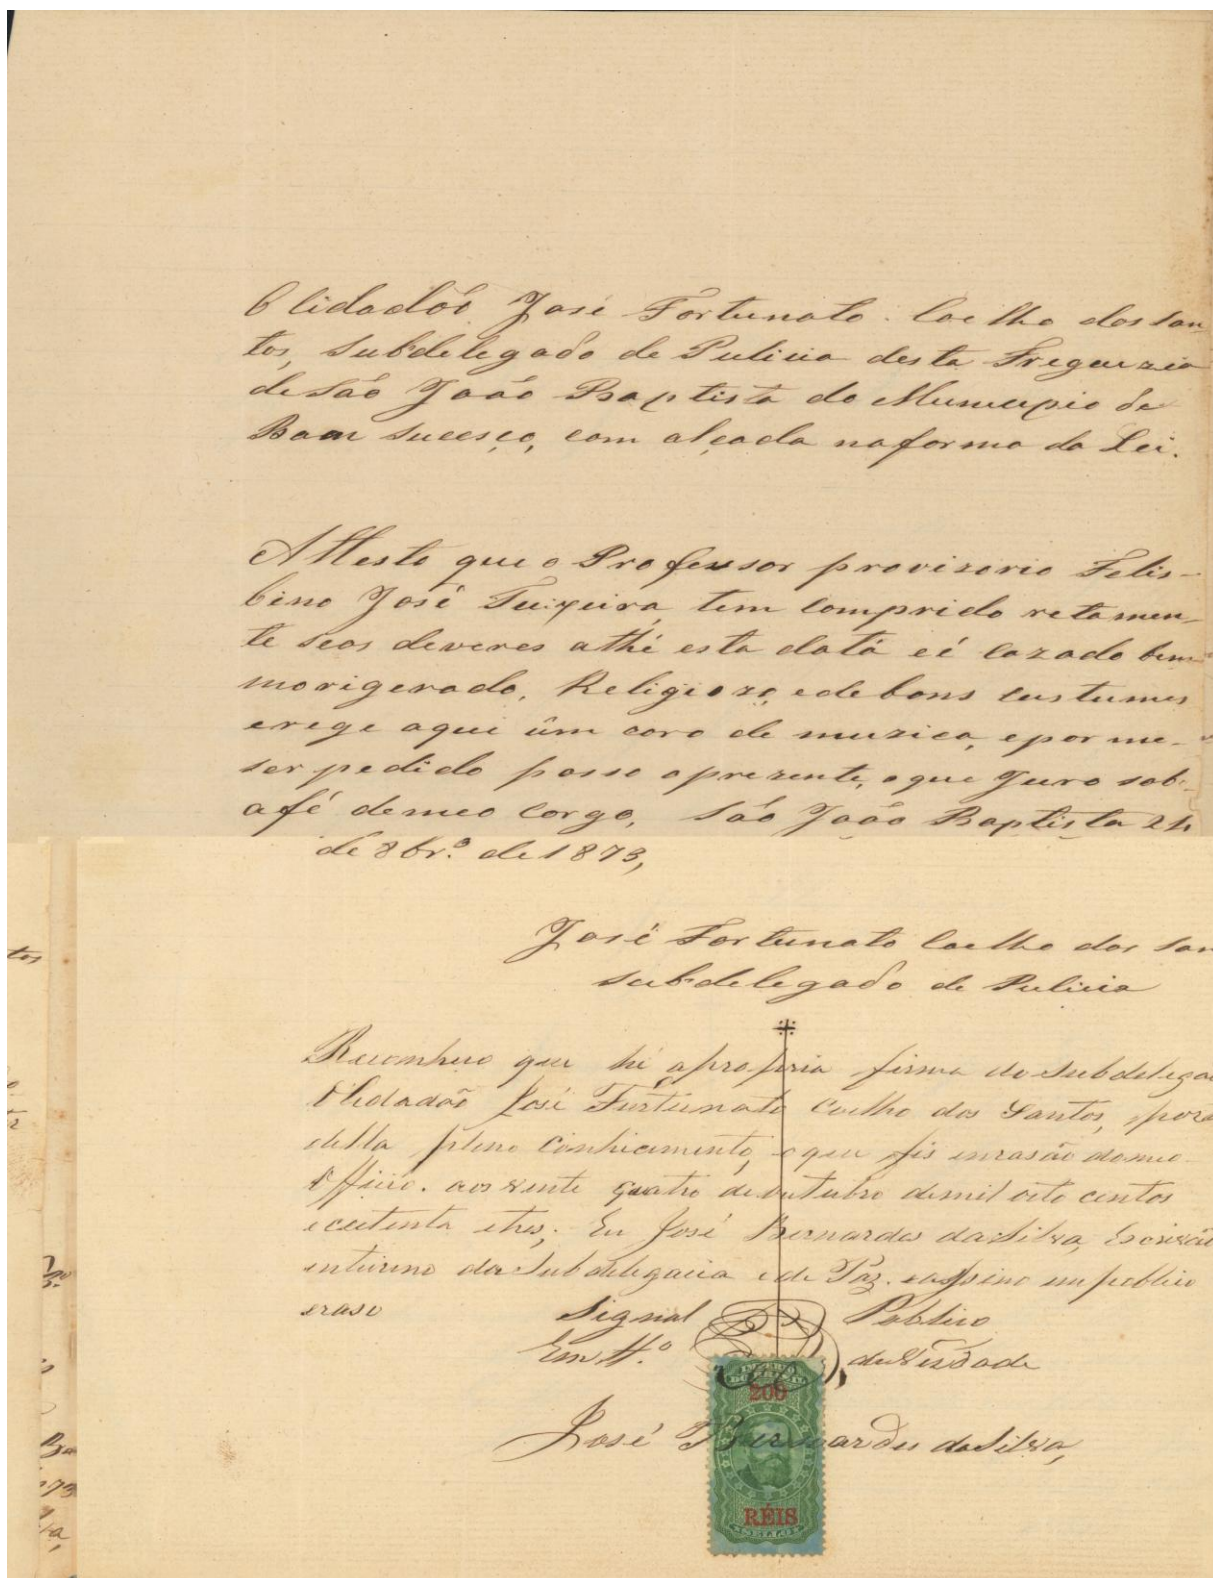 O Cidadão José Fortunato Coelho dos San
tos, Subdelegado de Pulicia desta Freguezia
de São João Baptista do Municipio de
Bom Sucesço, com alçada na forma da Lei.
Attesto que o Professor provizorio Felis-
bino José Teixeira, tem comprido retamen-
te seos deveres athé esta datá e é cazado bem
morigerado, Religiozo, e de bons custumes
e rege aqui ûm coro de muzica, e por me-
ser pedido passo o prezente, o que Juro sob-
a fé de meo Cargo, São João Baptista 24
de 8br.º de 1873,
José Fortunato Coelho dos San
Subdelegado de Pulicia
Reconheço que hé a propria firma do Subdelega
O Cidadão José Furtunato Coelho dos Santos, por
della pleno Conhicimento, o que fis em rasão do meo
Officio. aos vinte quatro de outubro de mil oito centos
e cetenta e tres; Eu José Bernardes da Silva, Escrivão
interino da Subdelegacia e de Paz. e assino em publico
e raso
Signal Publico
Em tt.º da Verdade
José Bernardes da Silva,
IMPERIO
DO BRAZIL
200
RÉIS
tos
Ba
73
va,